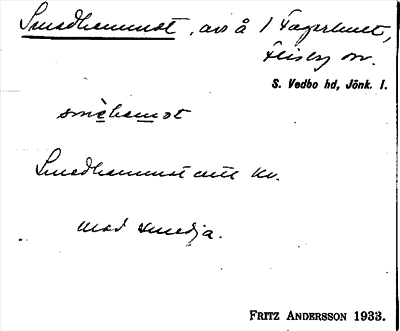 Smedhemmet, avs å 1 Fagerhult,
Flisby sn.
S. Vedbo hd, Jönk. l.
smèhemet
Smedhemmet
med smedja.
FRITZ ANDERSSON 1933.